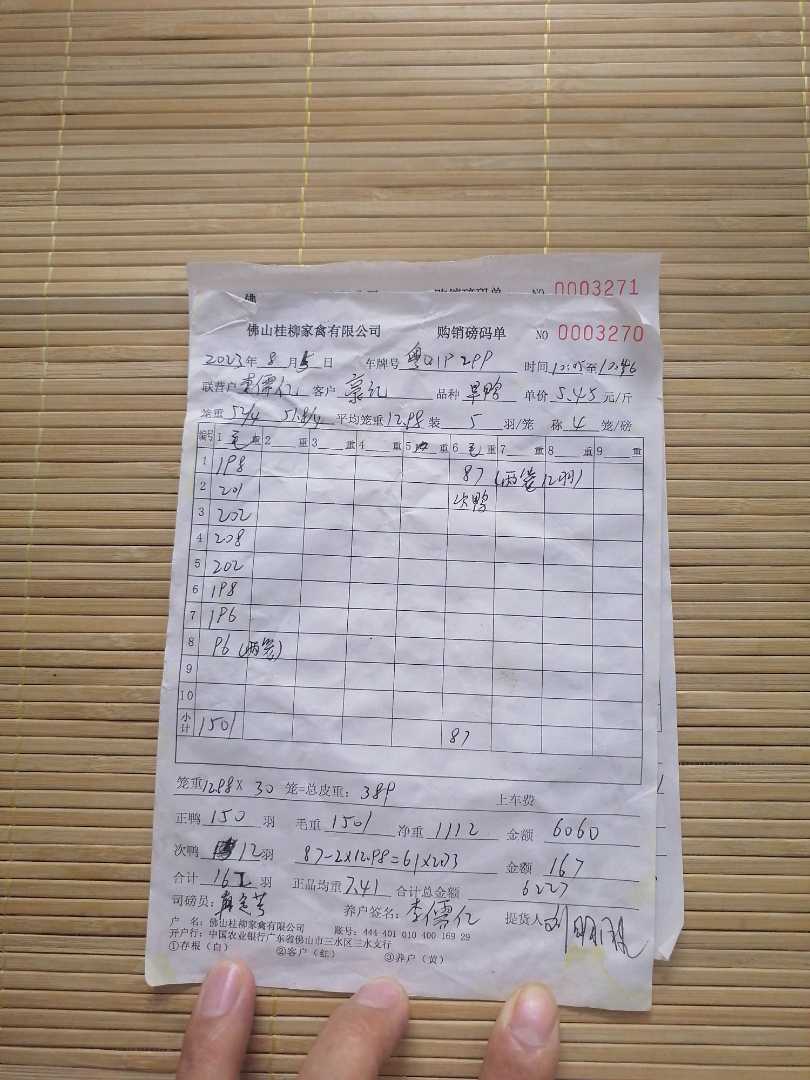 NO 0003271
佛山桂柳家禽有限公司 购销磅码单 NO 0003270
2023年 8 月 5 日 车牌号 时间 10:05至10:46
联营户 李儒亿 客户 豪记 品种 旱鸭 单价 5.45 元/斤
笼重 52/4 51.8/4 平均笼重 12.98 装 5 羽/笼 称 4 笼/磅
编号 1 毛 重 2 重 3 重 4 重 5 重 6 毛 重 7 重 8 重 9 重
1 198 87 (两笼12羽)
2 201 次鸭
3 202
4 208
5 202
6 198
7 196
8 96 (两笼)
9
10
小计 1501 87
笼重 12.98 × 30 笼=总皮重: 389 上车费
正鸭 150 羽 毛重 1501 净重 1112 金额 6060
次鸭 12 羽 87-2×12.98=61×2.03 金额 167
合计 162 羽 正品均重 7.41 合计总金额 6227
司磅员: 养户签名: 李儒亿 提货人
户 名: 佛山桂柳家禽有限公司 账号: 444 401 010 400 169 29
开户行: 中国农业银行广东省佛山市三水区三水支行
①存根（白） ②客户（红） ③养户（黄）